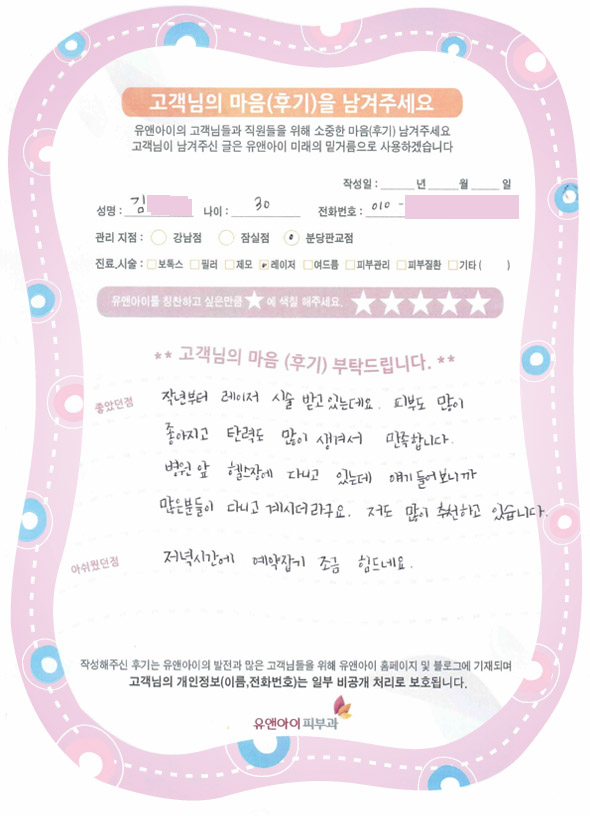 고객님의 마음(후기)을 남겨주세요
유앤아이의 고객님들과 직원들을 위해 소중한 마음(후기) 남겨주세요
고객님이 남겨주신 글은 유앤아이 미래의 밑거름으로 사용하겠습니다
작성일 : ______년 ______월 ______일
성명 : 김 나이 : 30 전화번호 : 010 -
관리 지점 : 강남점 잠실점 분당판교점
진료,시술 : 보톡스 필러 제모 레이저 여드름 피부관리 피부질환 기타 ( )
유앤아이를 칭찬하고 싶은만큼 ★에 색칠 해주세요. ★★★★★
** 고객님의 마음 (후기) 부탁드립니다. **
좋았던점 작년부터 레이저 시술 받고 있는데요. 피부도 많이
좋아지고 탄력도 많이 생겨서 만족합니다.
병원앞 헬스장에 다니고 있는데 얘기 들어보니까
많은분들이 다니고 계시더라구요. 저도 많이 추천하고 있습니다.
아쉬웠던점 저녁시간에 예약잡기 조금 힘드네요.
작성해주신 후기는 유앤아이의 발전과 많은 고객님들을 위해 유앤아이 홈페이지 및 블로그에 기재되며
고객님의 개인정보(이름,전화번호)는 일부 비공개 처리로 보호됩니다.
유앤아이피부과